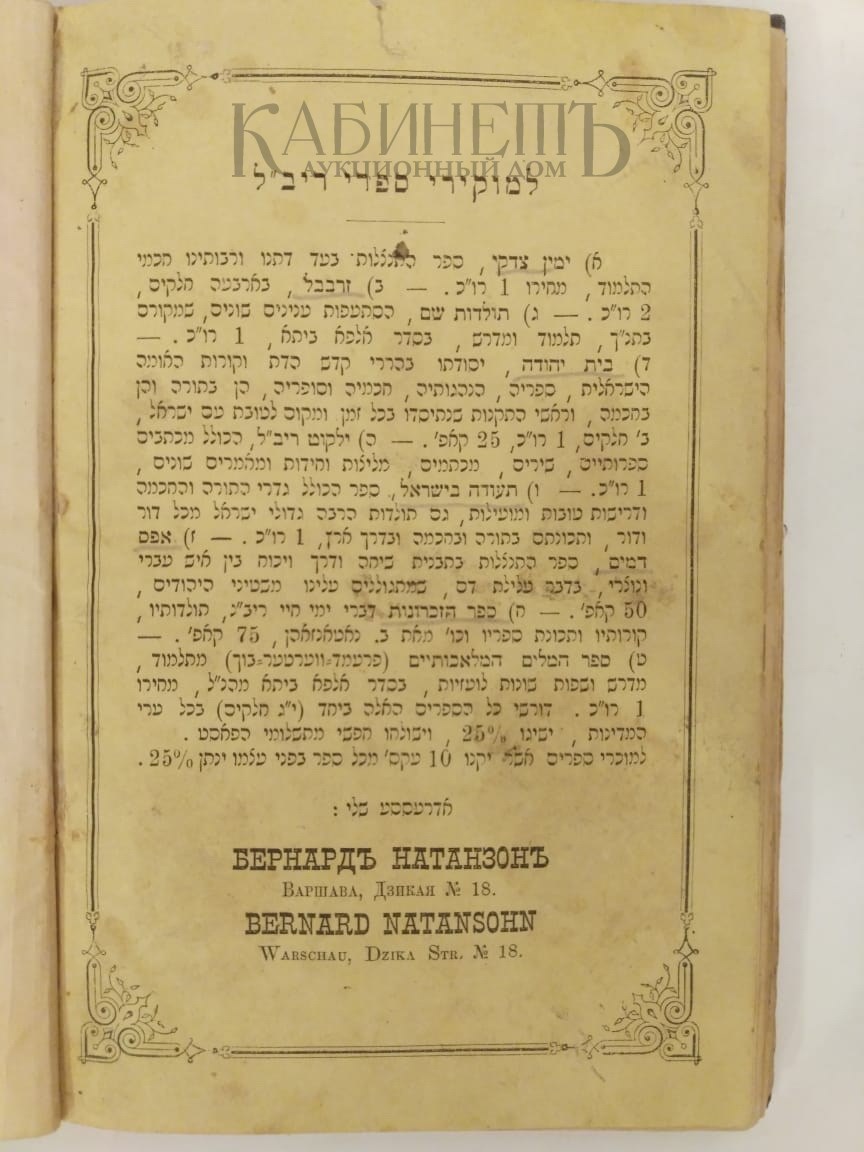 КАБИНЕТЪ
АУКЦИОННЫЙ ДОМ
למוקירי ספרי ריב״ל
א) ימין צדקי, ספר התגלות בעד דתנו ורבותינו חכמי
התלמוד, מחירו 1 רו״כ. — ב) זרבבל, בארבעה חלקים,
2 רו״כ. — ג) תולדות שם, הסתעפות ענינים שונים, שמקורם
בתנ״ך, תלמוד ומדרש, בסדר אלפא ביתא, 1 רו״כ. —
ד) בית יהודה, יסודתו בהררי קדש הדת וקורות האומה
הישראלית, ספריה, הנהגותיה, חכמיה וסופריה, הן בתורה והן
בחכמה, וראשי התקנות שנתיסדו בכל זמן ומקום לטובת עם ישראל,
ב׳ חלקים, 1 רו״כ, 25 קאפ׳. — ה) ילקוט ריב״ל, הכולל מכתבים
ספרותיים, שירים, מכתמים, מליצות וחידות ומאמרים שונים,
1 רו״כ. — ו) תעודה בישראל, ספר הכולל גדרי התורה והחכמה
ודרישות טובות ומועילות, גם תולדות הרבה גדולי ישראל מכל דור
ודור, ותכונתם בתורה ובחכמה ובדרך ארץ, 1 רו״כ. — ז) אפס
דמים, ספר התגלות בתבנית שיחה ודרך ויכוח בין איש עברי
ונוצרי, בדבר עלילת דם, שמתגוללים עלינו משטיני היהודים,
50 קאפ׳. — ח) ספר הזכרונות דברי ימי חיי ריב״ל, תולדותיו,
קורותיו ותכונת ספריו וכו׳ מאת ב. נאטאנזאהן, 75 קאפ׳. —
ט) ספר המלים המלאכותיים (פרעמד=ווערטער=בוך) מתלמוד,
מדרש ושפות שונות לועזיות, בסדר אלפא ביתא מהנ״ל, מחירו
1 רו״כ. דורשי כל הספרים האלה ביחד (י״ג חלקים) בכל ערי
המדינות, ישיגו 25%, וישולחו חפשי מתשלומי הפאסט.
למוכרי ספרים אשר יקנו 10 עקס׳ מכל ספר בפני עצמו ינתן 25%.
אדרעססע שלי:
БЕРНАРДЪ НАТАНЗОНЪ
Варшава, Дзикая № 18.
BERNARD NATANSOHN
Warschau, Dzika Str. № 18.